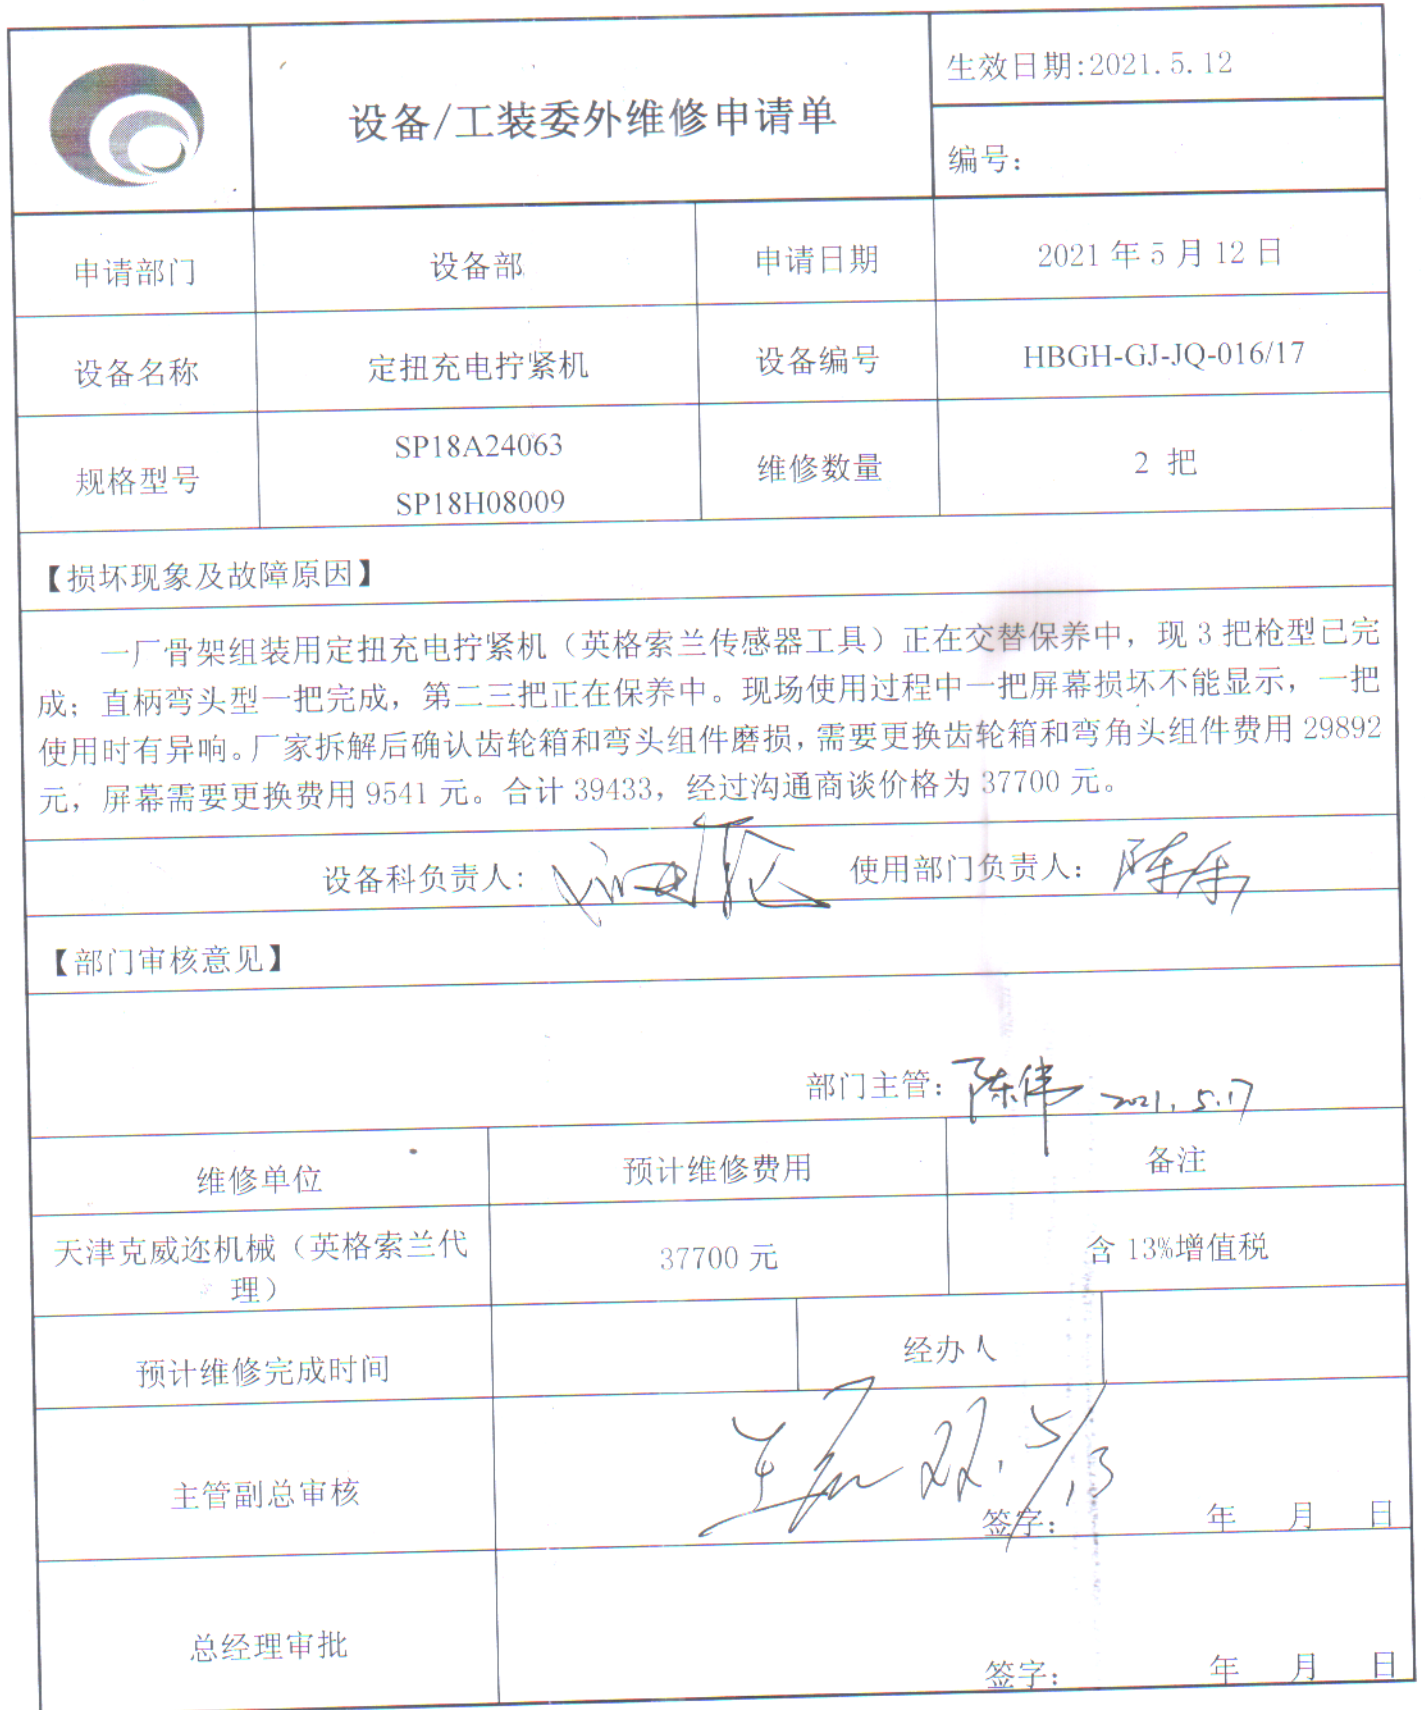 设备/工装委外维修申请单
生效日期:2021.5.12
编号：
申请部门 设备部 申请日期 2021 年 5 月 12 日
设备名称 定扭充电拧紧机 设备编号 HBGH-GJ-JQ-016/17
规格型号 SP18A24063 维修数量 2 把
SP18H08009
【损坏现象及故障原因】
一厂骨架组装用定扭充电拧紧机（英格索兰传感器工具）正在交替保养中，现 3 把枪型已完
成；直柄弯头型一把完成，第二三把正在保养中。现场使用过程中一把屏幕损坏不能显示，一把
使用时有异响。厂家拆解后确认齿轮箱和弯头组件磨损，需要更换齿轮箱和弯角头组件费用 29892
元，屏幕需要更换费用 9541 元。合计 39433，经过沟通商谈价格为 37700 元。
设备科负责人： 使用部门负责人：
【部门审核意见】
部门主管：陈伟 2021.5.17
维修单位 预计维修费用 备注
天津克威迩机械（英格索兰代 37700 元 含 13%增值税
理）
预计维修完成时间 经办人
主管副总审核 5/13
签字： 年 月 日
总经理审批
签字： 年 月 日